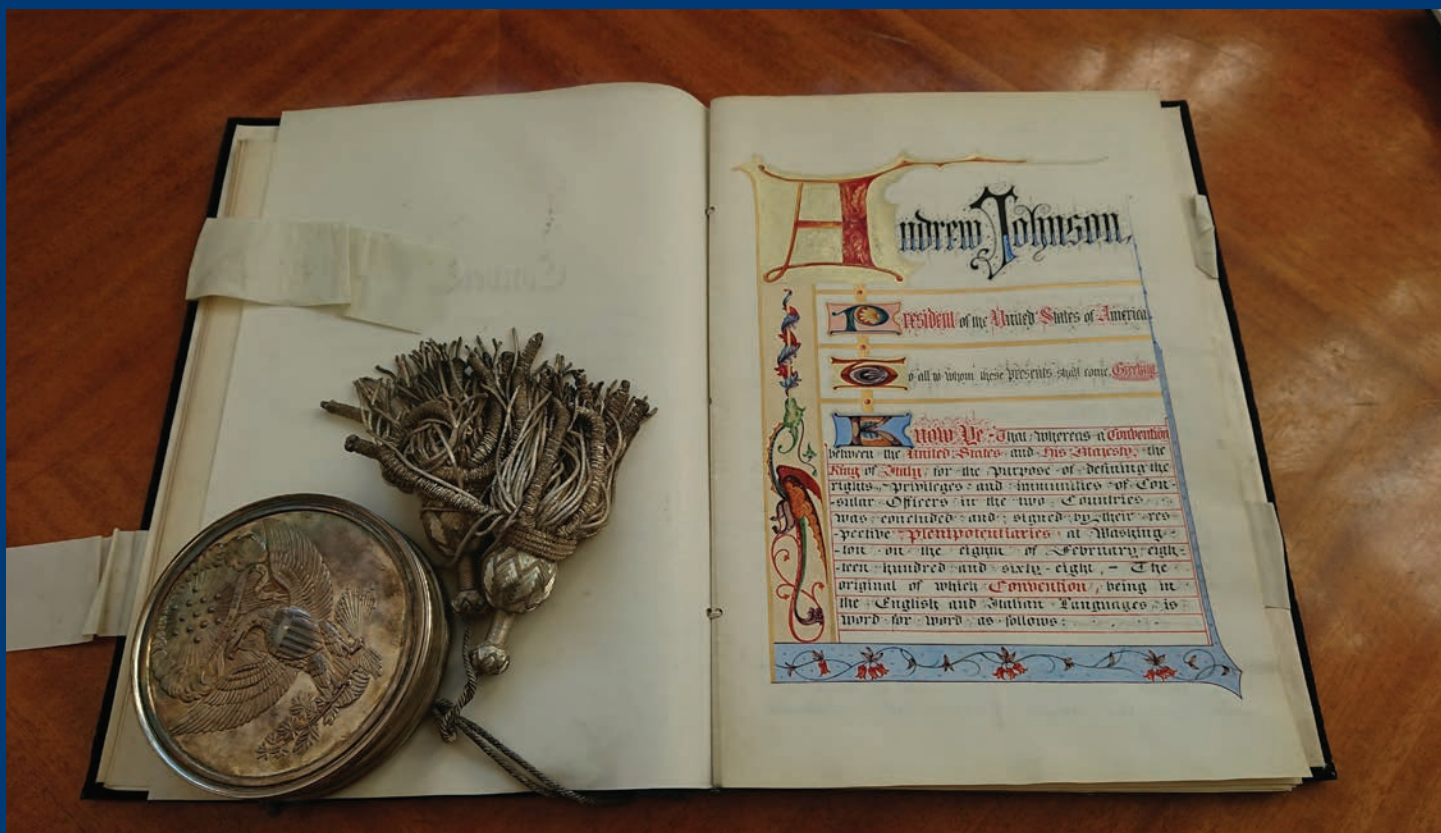 Andrew Johnson,
President of the United States of America.
To all to whom these presents shall come, Greeting.
Know Ye, That, whereas a Convention
between the United States and His Majesty, the
King of Italy, for the purpose of defining the
rights, privileges and immunities of Con-
sular Officers in the two Countries
was concluded and signed by their res-
pective plenipotentiaries at Washing-
-ton on the eighth of February, eigh-
-teen hundred and sixty-eight, - The
original of which Convention, being in
the English and Italian Languages is
word for word as follows: